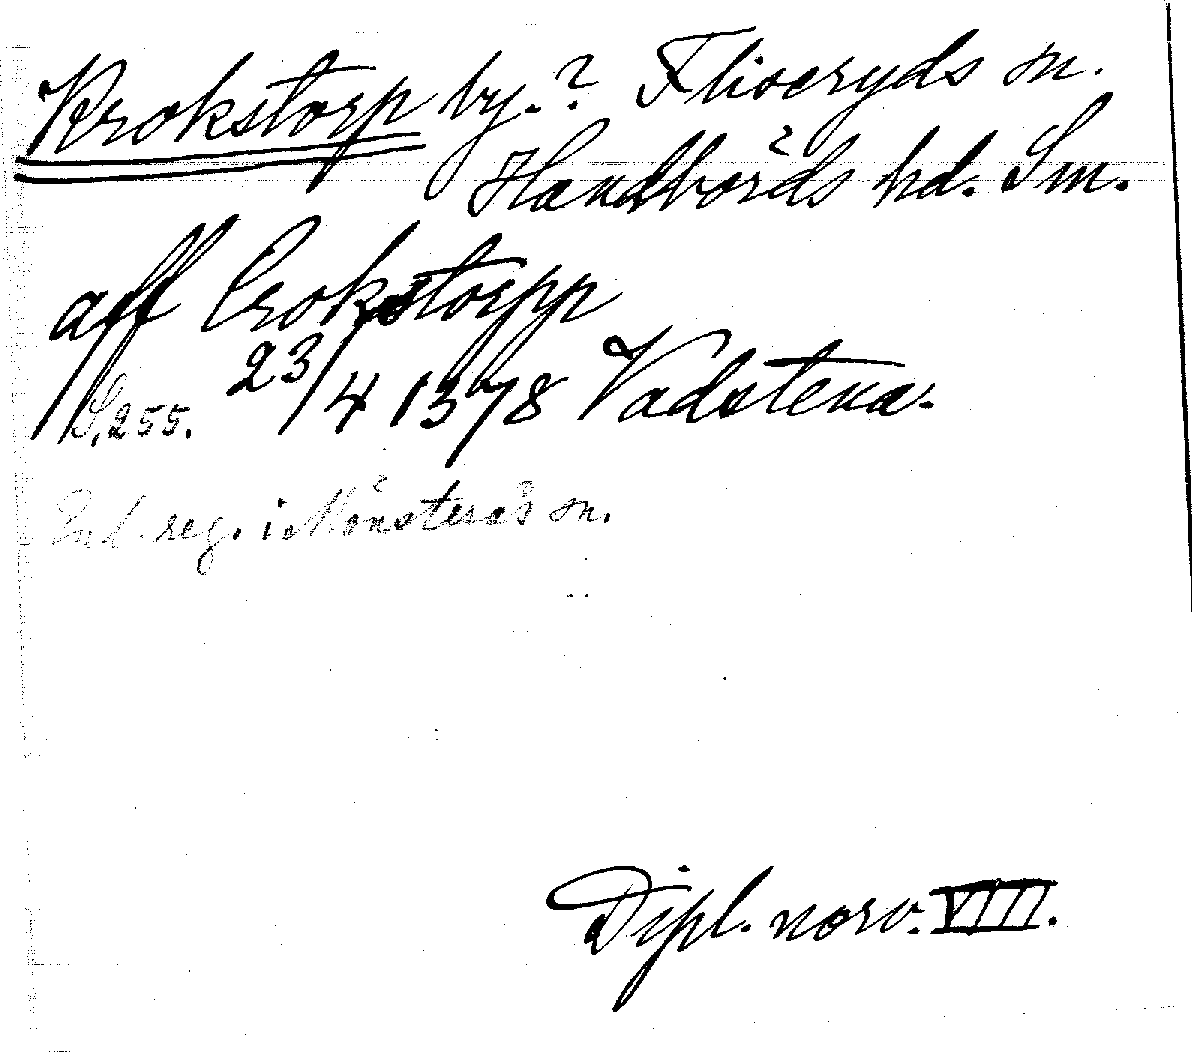 Krokstorp by.? Fliseryds sn.
Handbörds hd. Sm.
aff Crokstorpp
23/4 1378 Vadstena.
S. 255.
End. reg. i Mönsterås sn.
Dipl. norv. VIII.